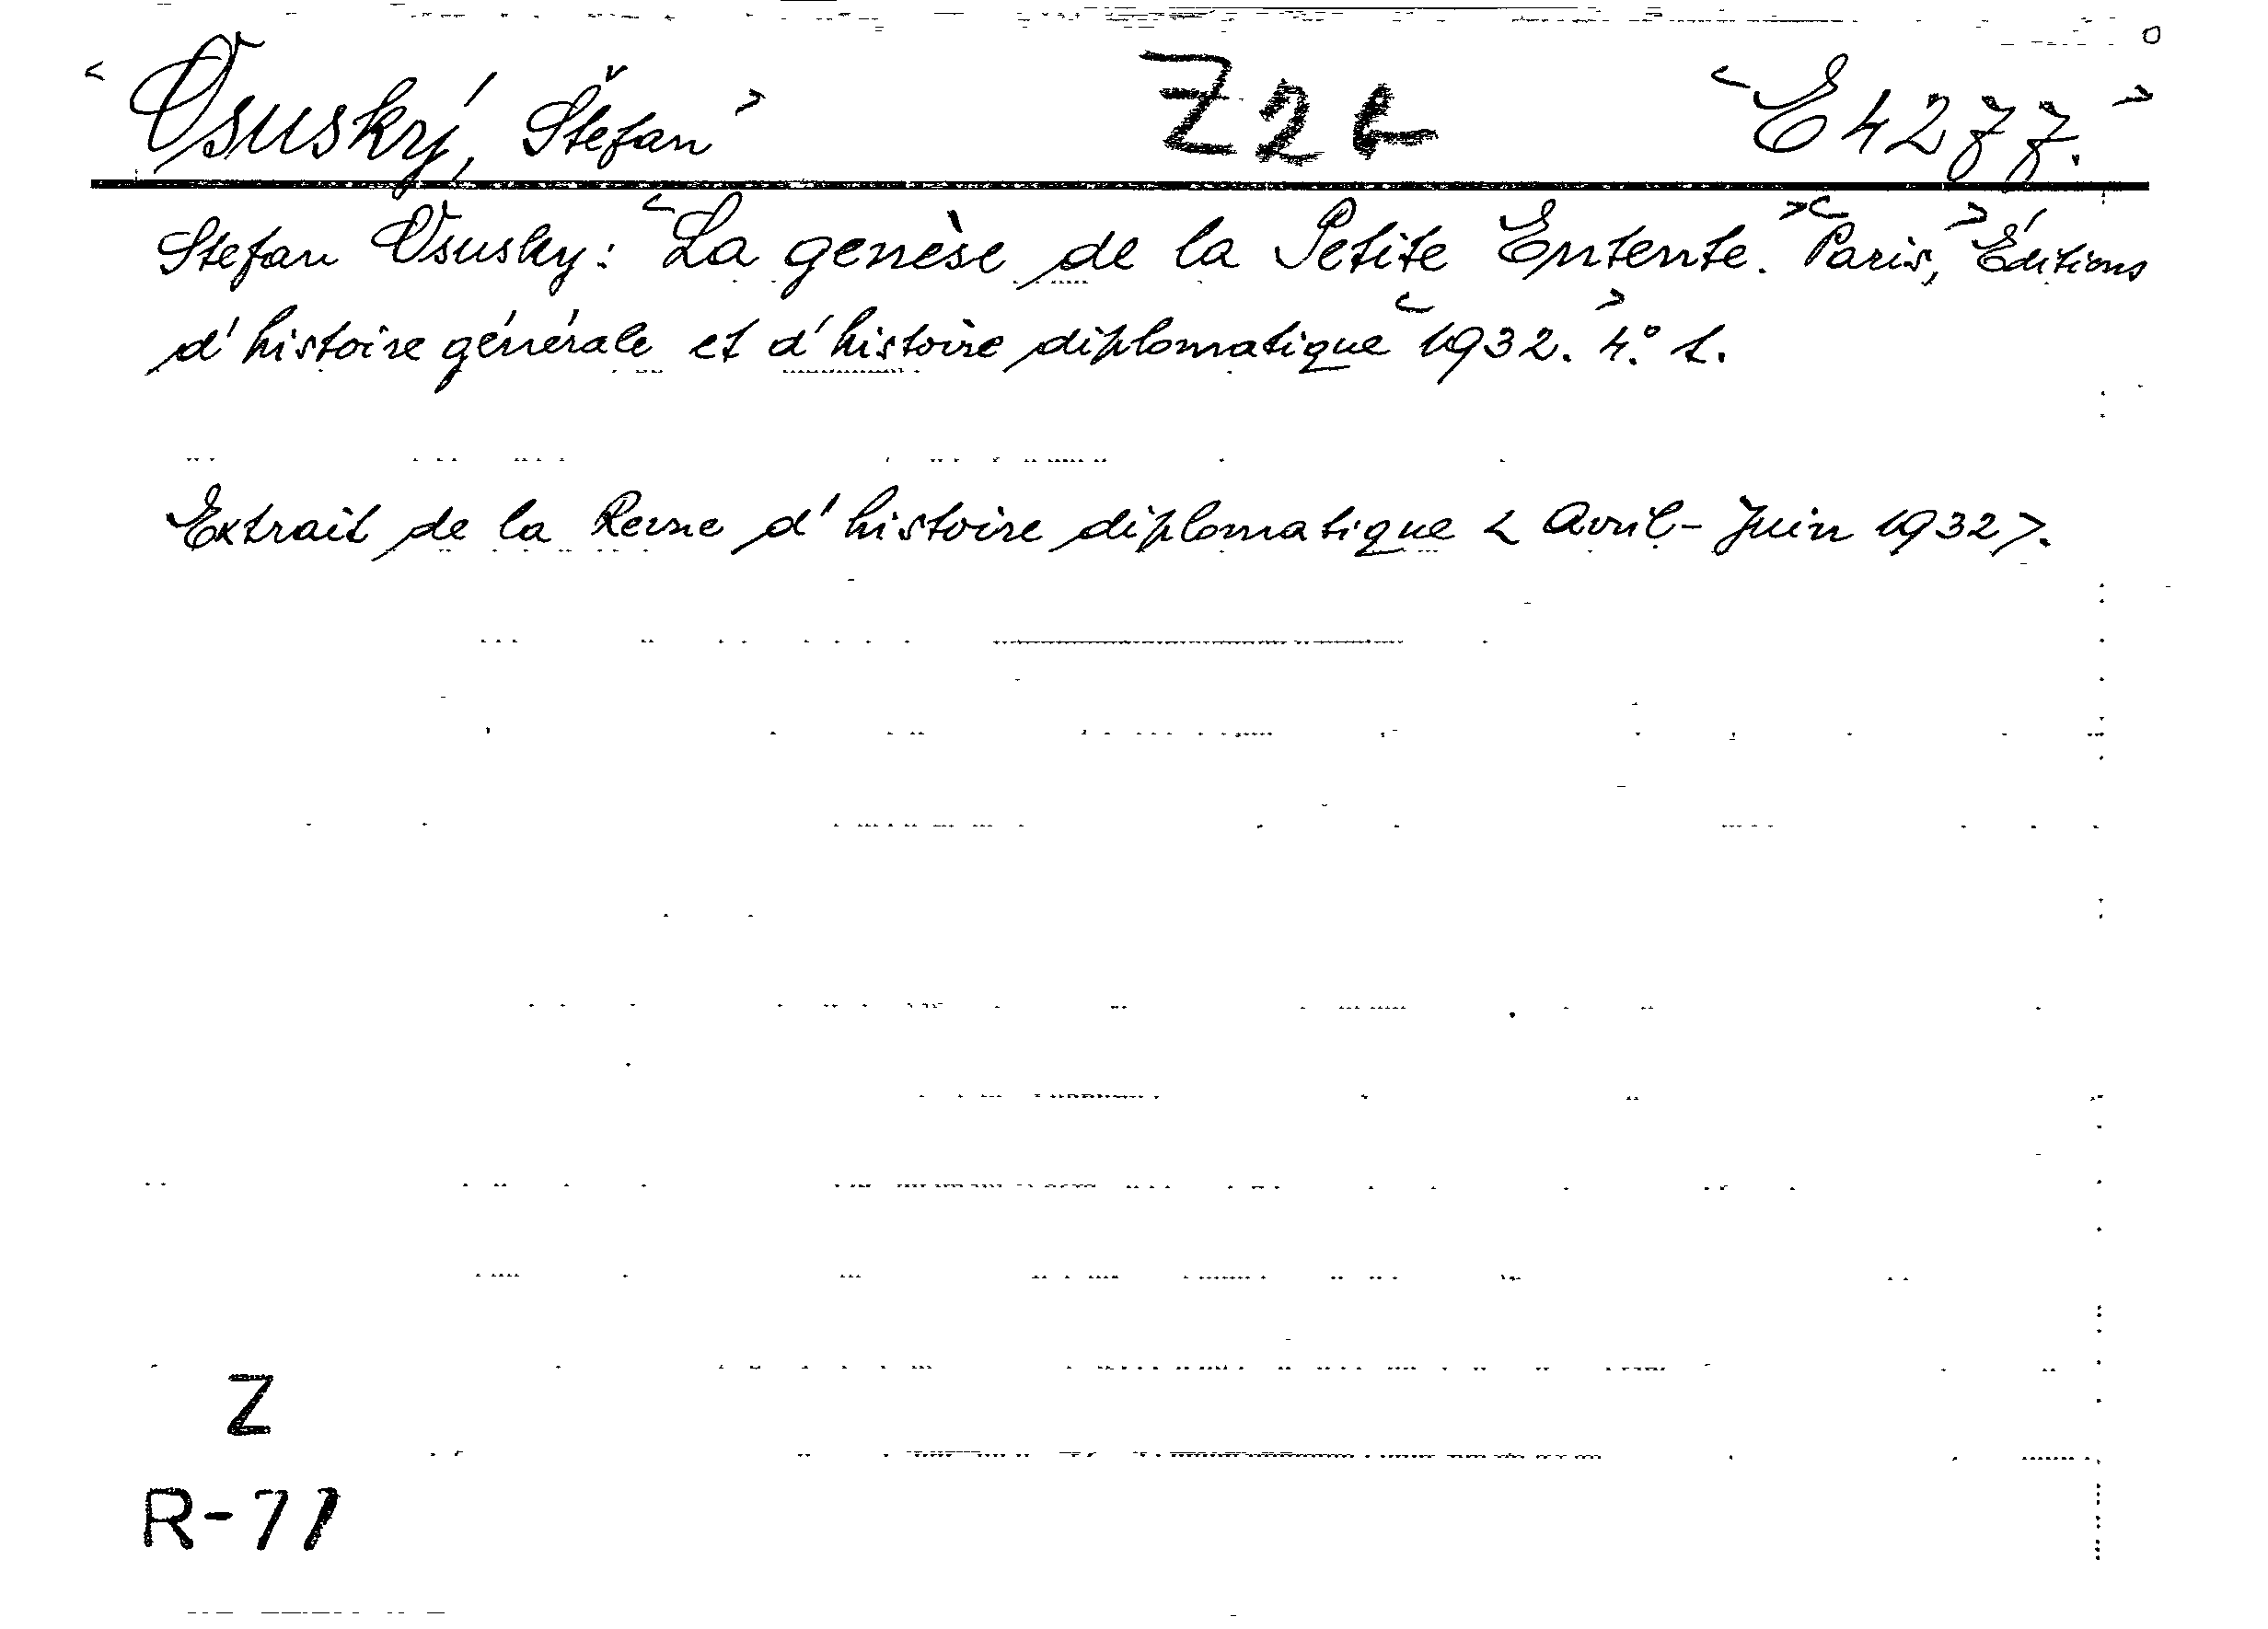 <Osuský, Štefan> Z2t <E4277.>
Stefan Osusky: <La genèse de la Petite Entente.> <Paris,> Éditions
d'histoire générale et d'histoire diplomatique <1932.> 4.° 1.
Extrait de la Revue d'histoire diplomatique <Avril-Juin 1932>.
Z
R-77